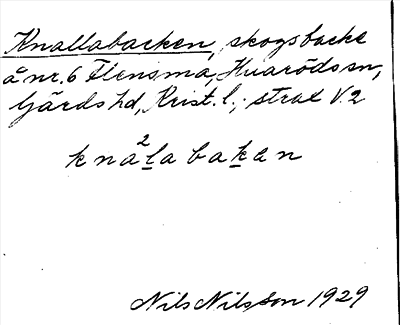 Knallabacken, skogsbacke
å nr. 6 Flensma, Huarödssn,
Gärds hd, Krist. l.; strax V. 2
2
knalabakan
Nils Nilsson 1929